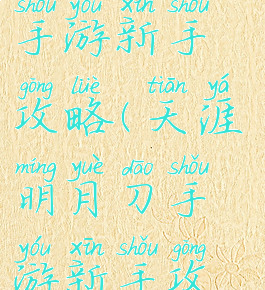 shǒu yóu xīn shǒu
手游新手
gōng lüè tiān yá
攻略(天涯
míng yuè dāo shǒu
明月刀手
yóu xīn shǒu gōng
游新手攻